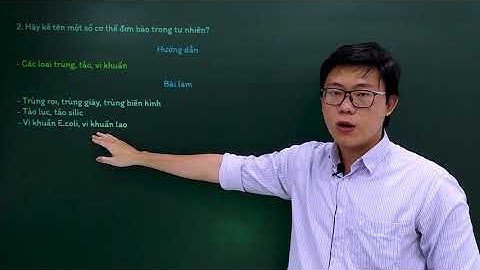 2. Hãy kể tên một số cơ thể đơn bào trong tự nhiên?
Hướng dẫn
- Các loại trùng, tảo, vi khuẩn
Bài làm
- Trùng roi, trùng giày, trùng biến hình
- Tảo lục, tảo silic
- Vi khuẩn E.coli, vi khuẩn lao